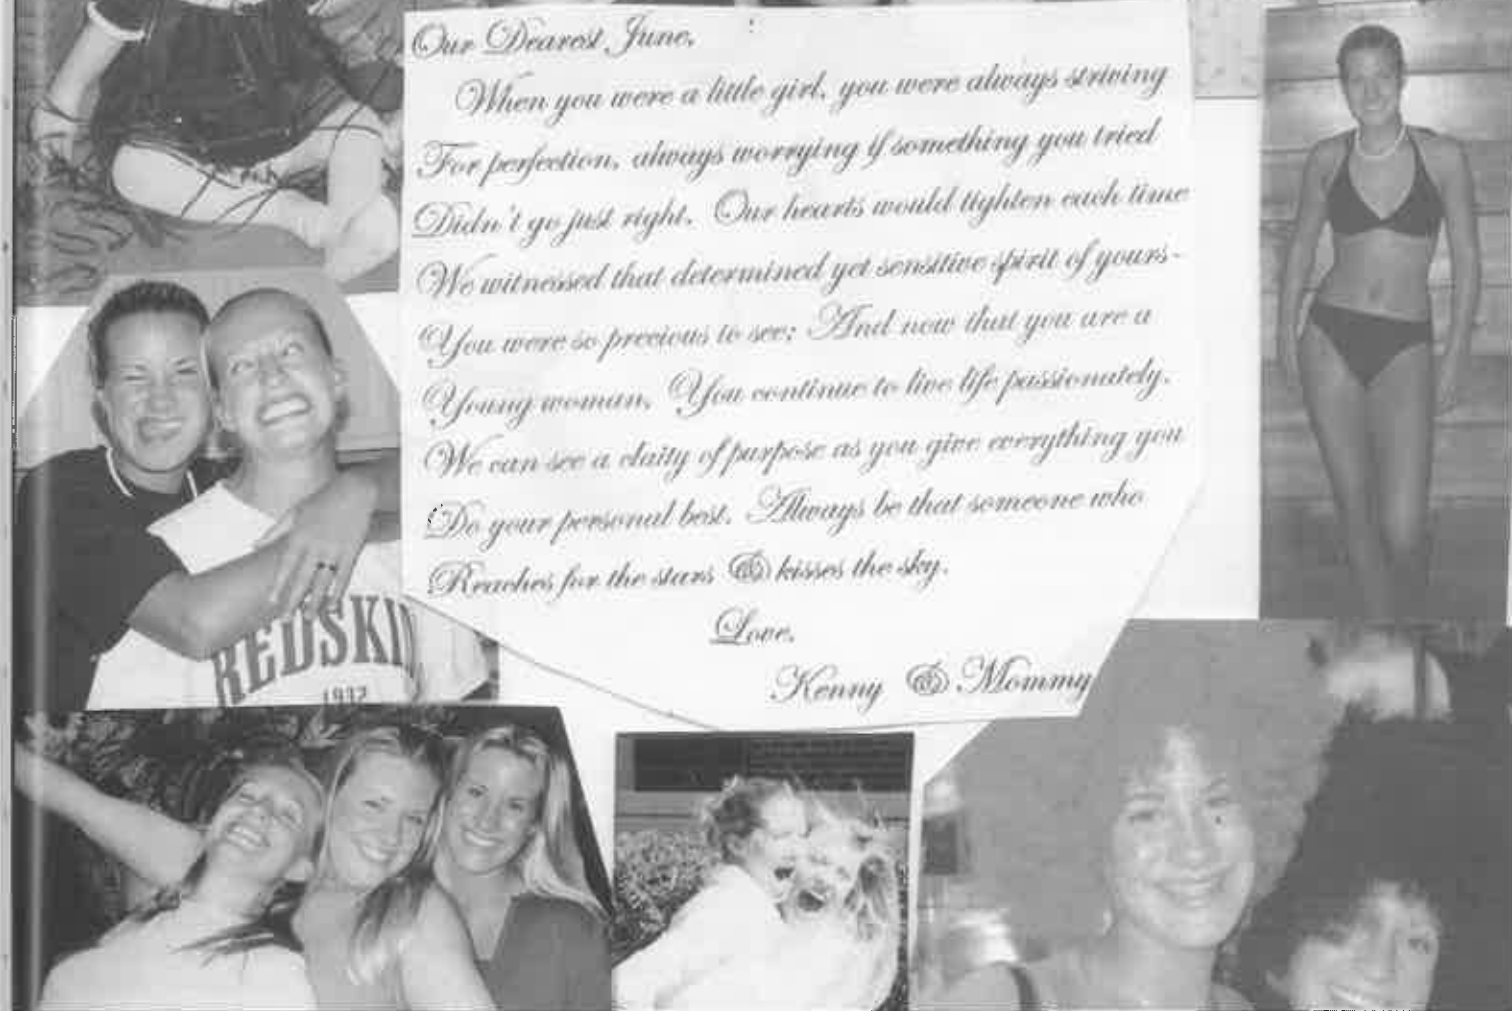 Our Dearest June,
When you were a little girl, you were always striving
For perfection, always worrying if something you tried
Didn't go just right. Our hearts would tighten each time
We witnessed that determined yet sensitive spirit of yours-
You were so precious to see; And now that you are a
Young woman, You continue to live life passionately.
We can see a claity of purpose as you give everything you
Do your personal best. Always be that someone who
Reaches for the stars & kisses the sky.
Love,
Kenny & Mommy
REDSKI
1937